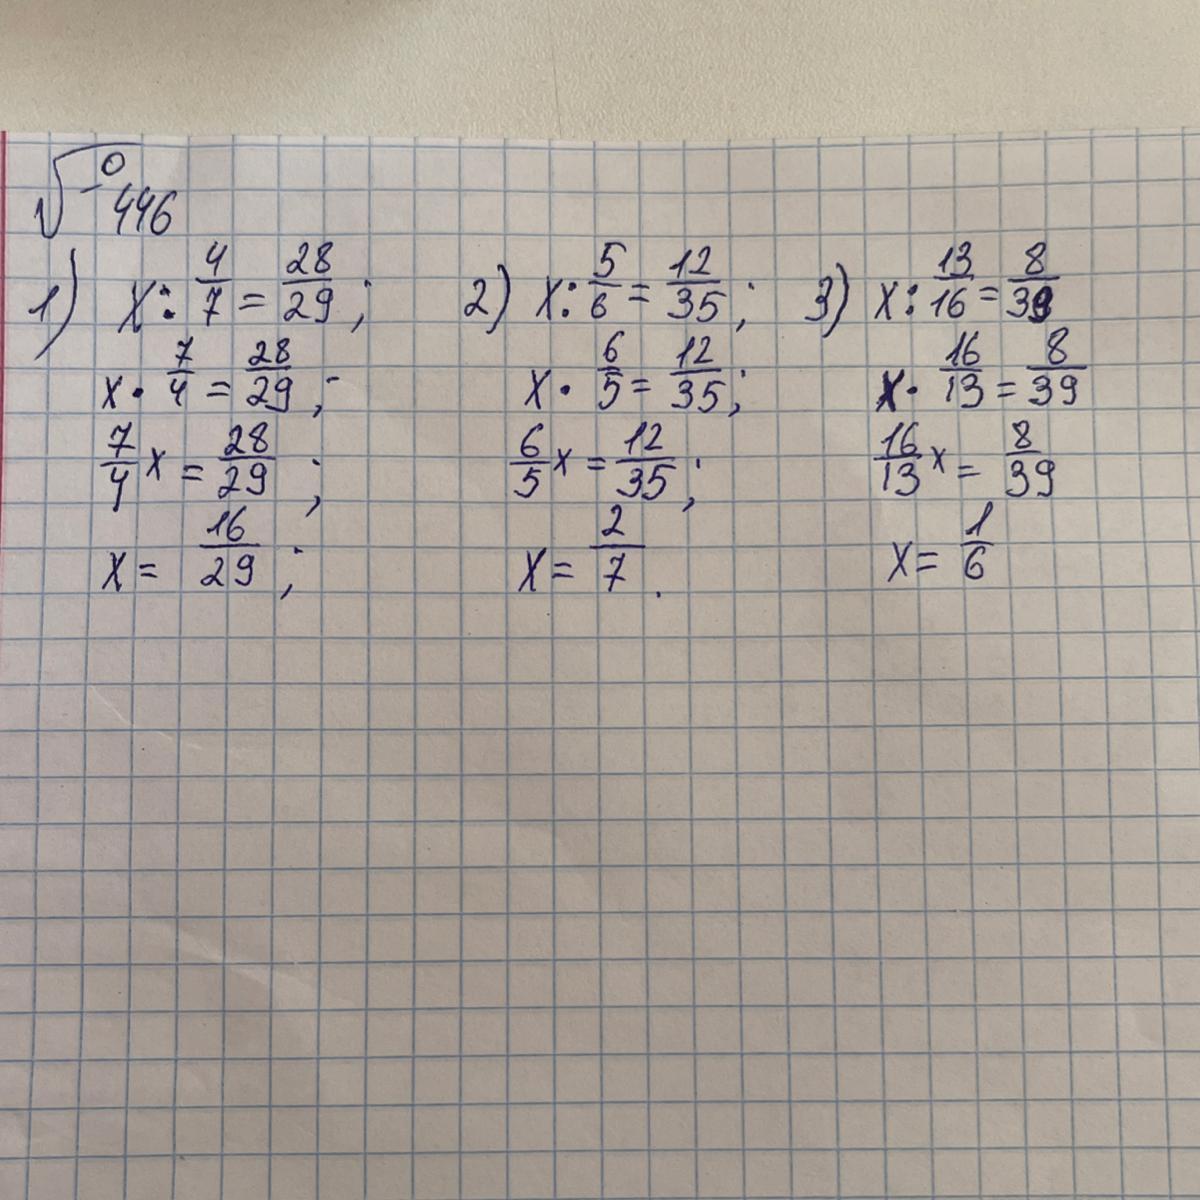 №446
1) x : 4/7 = 28/29 ;
x · 7/4 = 28/29 ;
7/4 x = 28/29 ;
x = 16/29 ;
2) x : 5/6 = 12/35 ;
x · 6/5 = 12/35 ;
6/5 x = 12/35 ;
x = 2/7 .
3) x : 13/16 = 8/39
x · 16/13 = 8/39
16/13 x = 8/39
x = 1/6